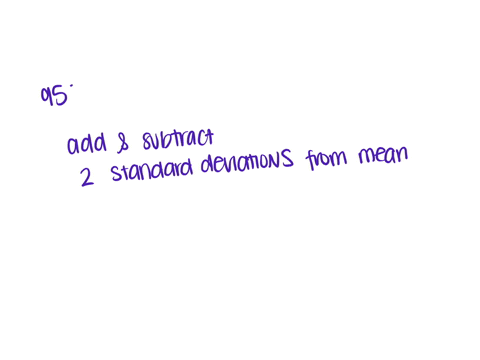 95·
add & subtract
2 standard deviations from mean